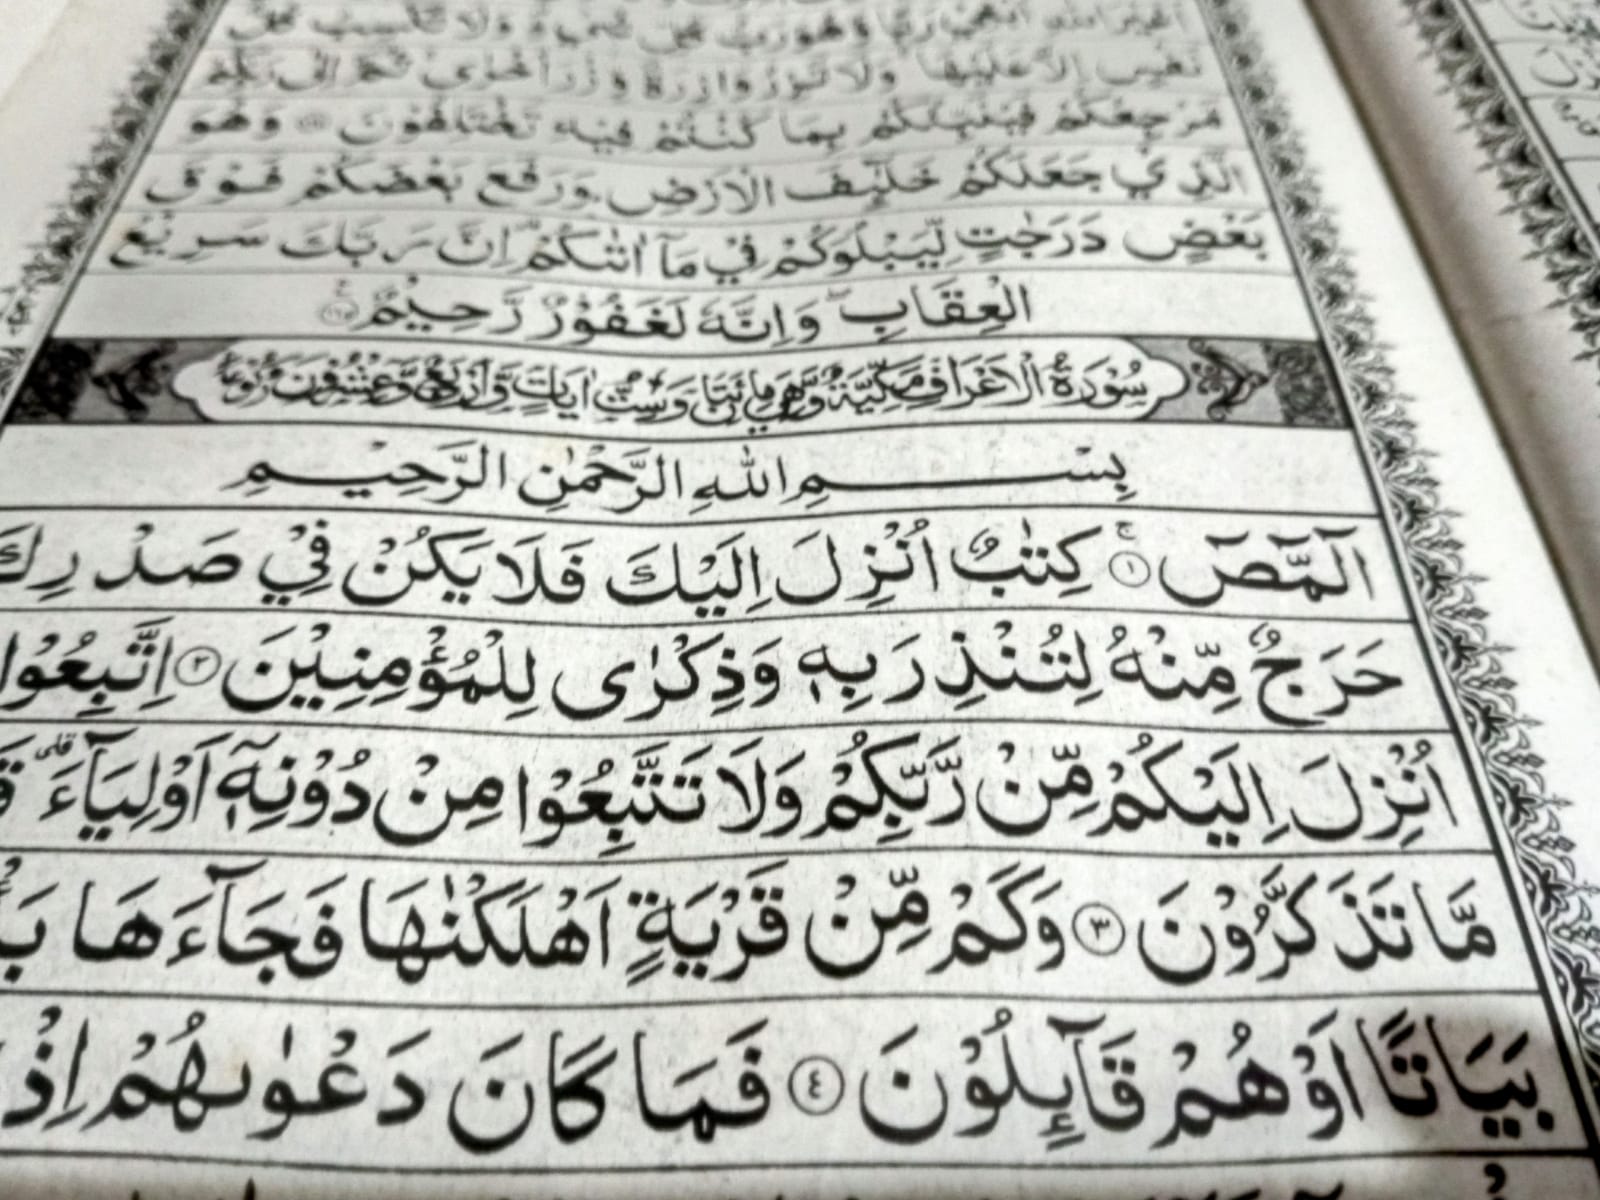 اَغَيْرَ اللهِ اَبْغِيْ رَبًّا وَّهُوَ رَبُّ كُلِّ شَيْءٍ وَلَا تَكْسِبُ كُلُّ
نَفْسٍ اِلَّا عَلَيْهَا وَلَا تَزِرُ وَازِرَةٌ وِّزْرَ اُخْرٰى ثُمَّ اِلٰى رَبِّكُمْ
مَّرْجِعُكُمْ فَيُنَبِّئُكُمْ بِمَا كُنْتُمْ فِيْهِ تَخْتَلِفُوْنَ وَهُوَ
الَّذِيْ جَعَلَكُمْ خَلٰٓئِفَ الْاَرْضِ وَرَفَعَ بَعْضَكُمْ فَوْقَ
بَعْضٍ دَرَجٰتٍ لِّيَبْلُوَكُمْ فِيْ مَآ اٰتٰىكُمْ اِنَّ رَبَّكَ سَرِيْعُ
الْعِقَابِ وَاِنَّهٗ لَغَفُوْرٌ رَّحِيْمٌ ١٦٥
سُوْرَةُ الْاَعْرَافِ مَكِّيَّةٌ وَّهِيَ مِائَتَا وَسِتُّ اٰيَاتٍ وَّاَرْبَعٌ وَّعِشْرُوْنَ رُكُوْعًا
بِسْمِ اللهِ الرَّحْمٰنِ الرَّحِيْمِ
الٓمّٓصٓ ١ كِتٰبٌ اُنْزِلَ اِلَيْكَ فَلَا يَكُنْ فِيْ صَدْرِكَ
حَرَجٌ مِّنْهُ لِتُنْذِرَ بِهٖ وَذِكْرٰى لِلْمُؤْمِنِيْنَ ٢ اِتَّبِعُوْا
اُنْزِلَ اِلَيْكُمْ مِّنْ رَّبِّكُمْ وَلَا تَتَّبِعُوْا مِنْ دُوْنِهٖٓ اَوْلِيَآءَ ۗ
مَّا تَذَكَّرُوْنَ ٣ وَكَمْ مِّنْ قَرْيَةٍ اَهْلَكْنٰهَا فَجَآءَهَا
بَيَاتًا اَوْ هُمْ قَآئِلُوْنَ ٤ فَمَا كَانَ دَعْوٰىهُمْ اِذْ